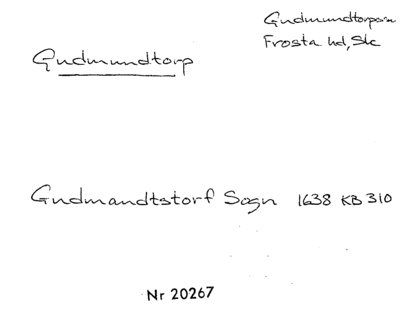 Gudmundtorpsn
Frosta hd, Sk
Gudmundtorp
Gudmandtstorf Sogn 1638 KB 310
Nr 20267